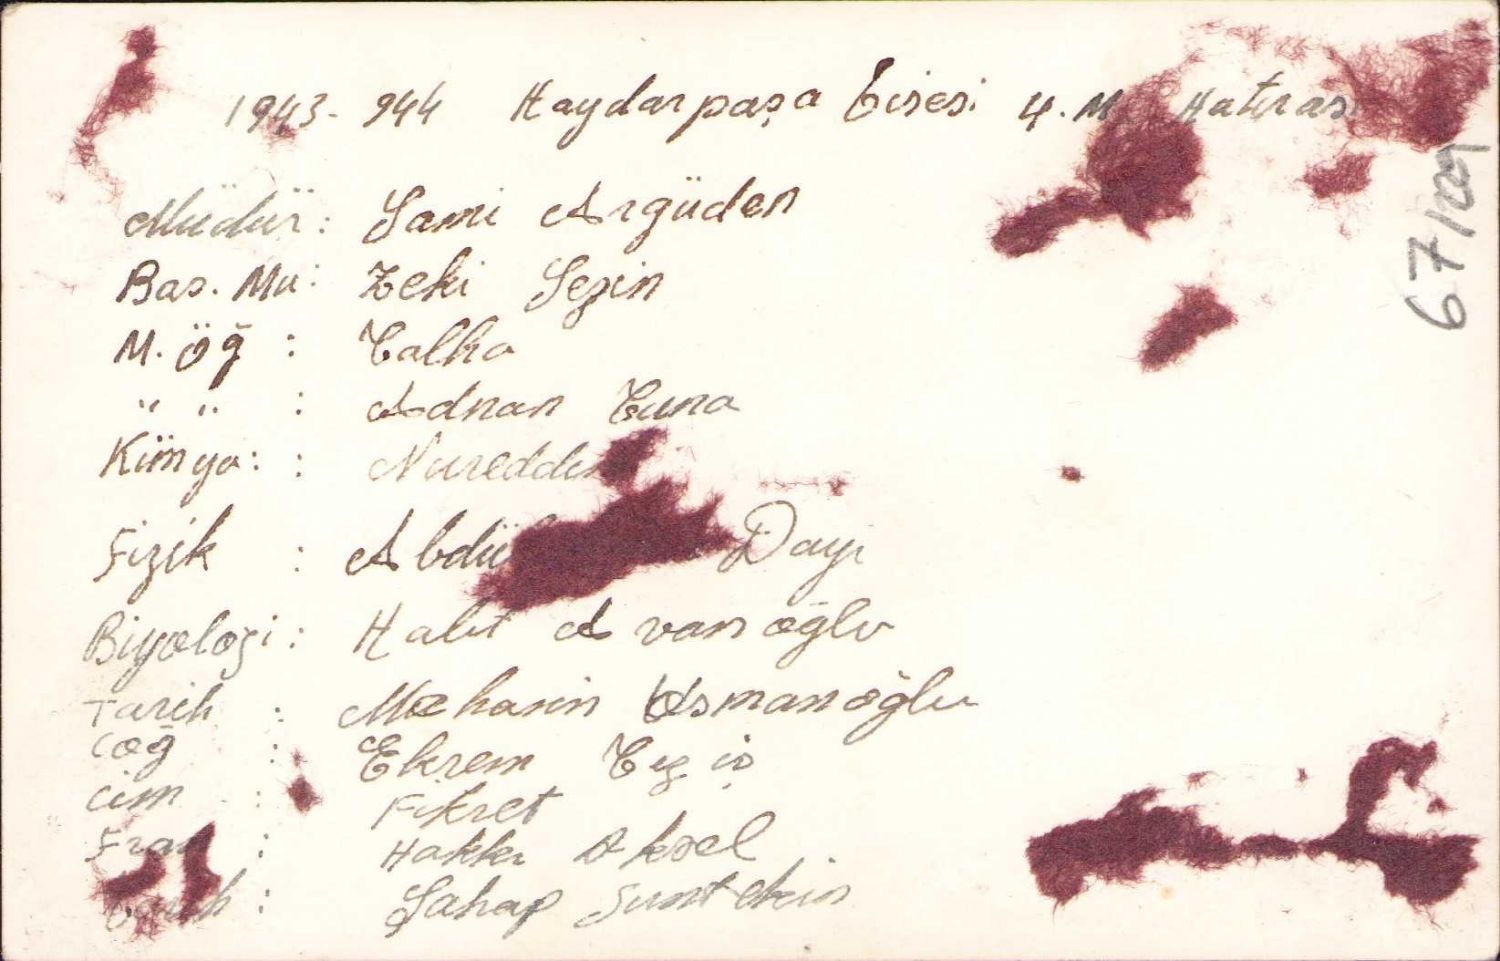 1943-944 Haydarpaşa Lisesi 4.M Hatıras
Müdür: Sami Argüden
Bas. Mu: Zeki Sezin
M. Öğ : Talha
" " : Adnan Tuna
Kimya: : Nureddin
Fizik : Dayı
Biyoloji: Halit Avanoğlu
Tarih : Mehasin Osmanoğlu
Coğ : Ekrem
Cim : Fikret
Fran : Hakkı Aksel
: Şahap
67/129